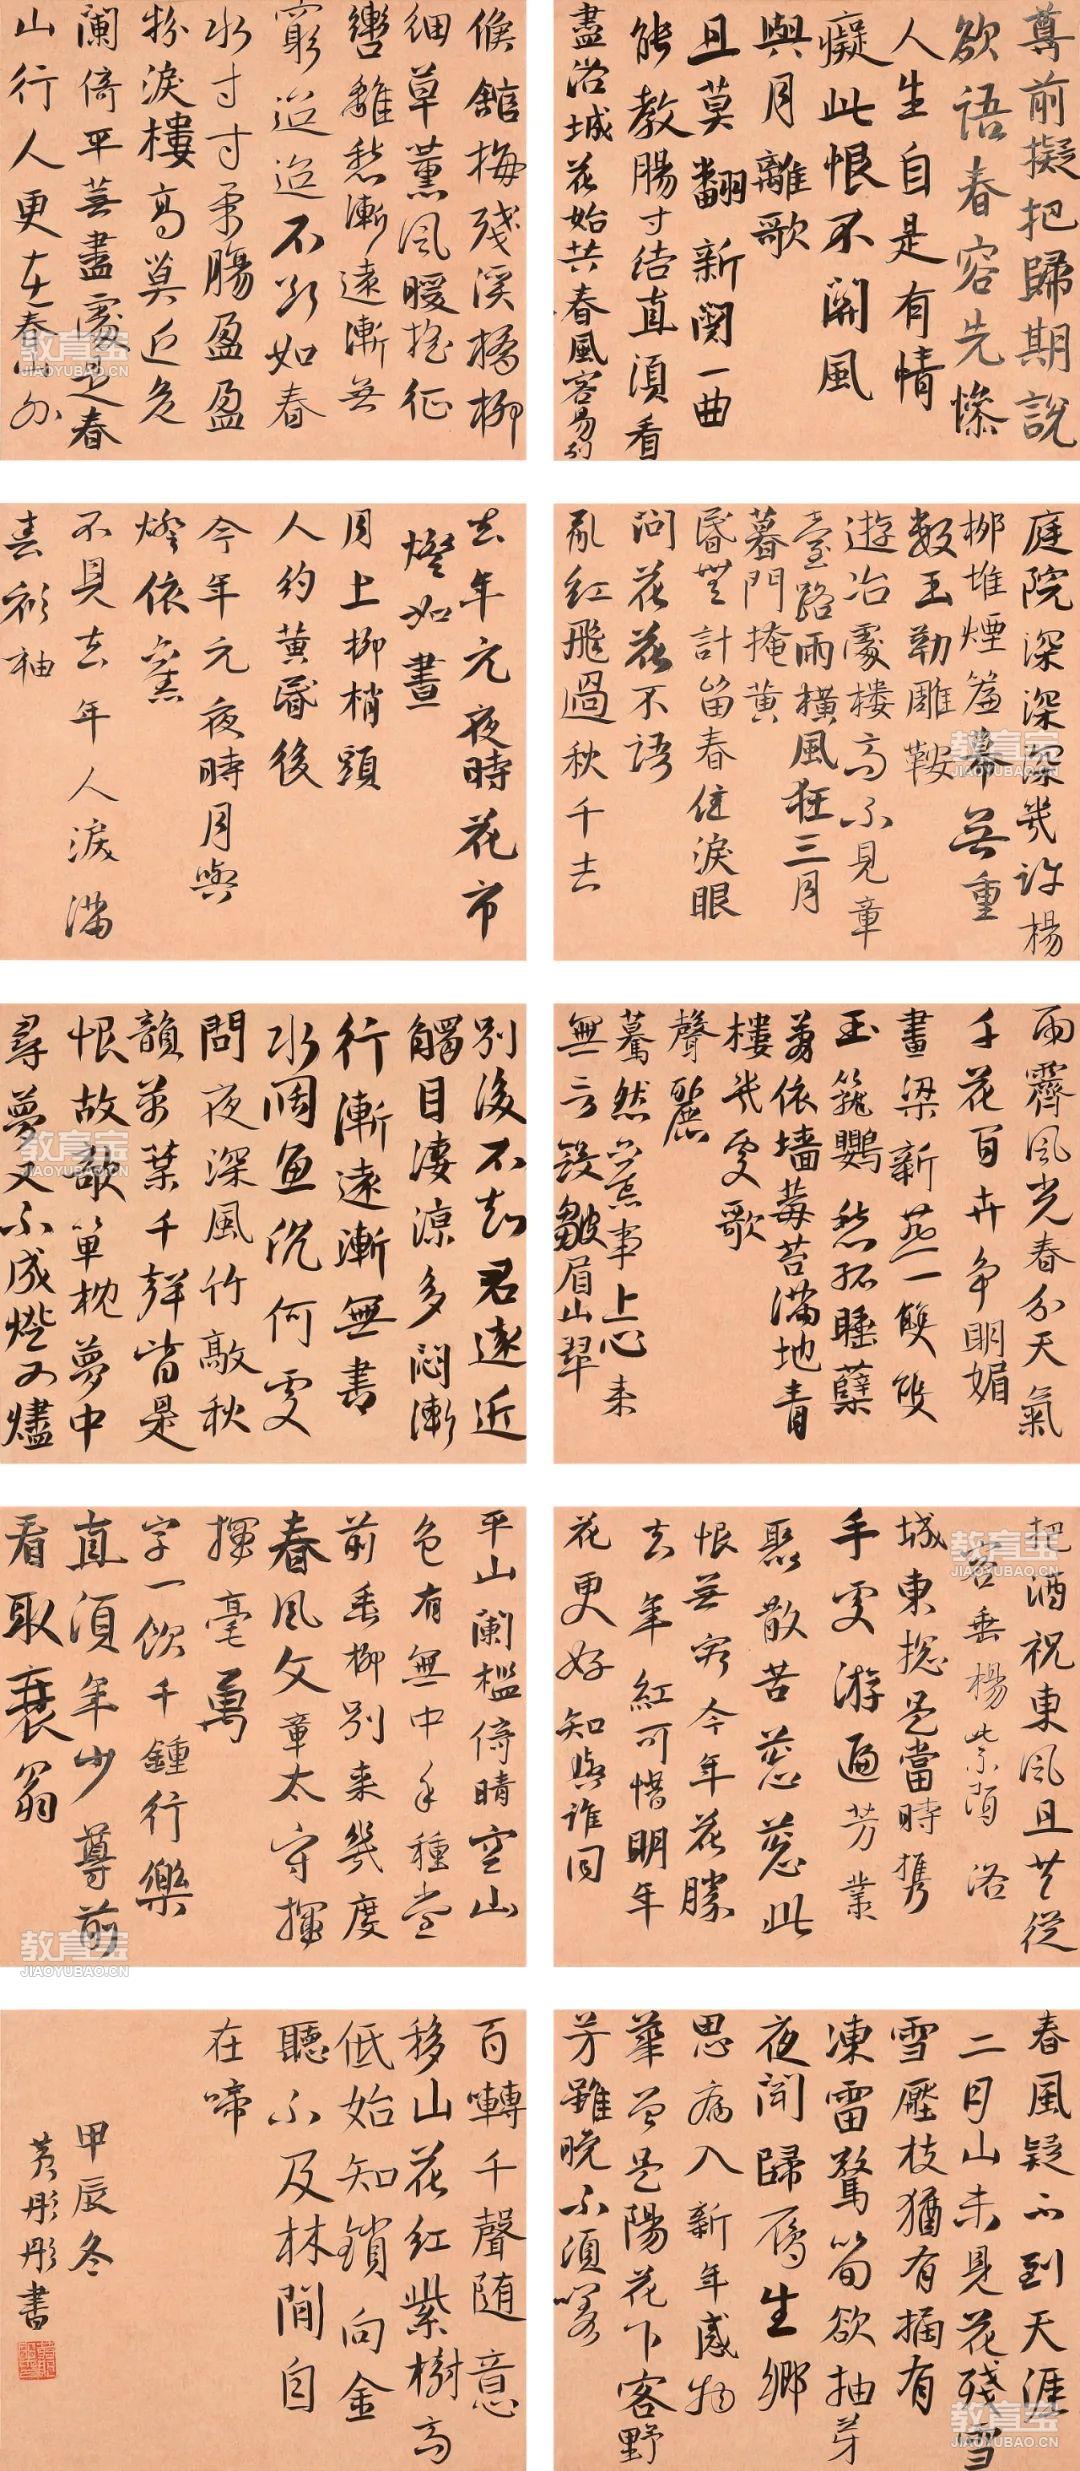 尊前擬把歸期說
欲語春容先慘
人生自是有情
癡此恨不關風
與月離歌
且莫翻新闋一曲
能教腸寸結直須看
盡洛城花始共春風容易別
候館梅殘溪橋柳
細草薰風暖搖征
轡離愁漸遠漸無
窮迢迢不斷如春
水寸寸柔腸盈盈
粉淚樓高莫近危
闌倚平蕪盡處是春
山行人更在春山外
庭院深深深幾許楊
柳堆煙簾幕無重
數玉勒雕鞍
遊冶處樓高不見章
臺路雨橫風狂三月
暮門掩黃
昏無計留春住淚眼
問花花不語
亂紅飛過秋千去
去年元夜時花市
燈如晝
月上柳梢頭
人約黃昏後
今年元夜時月與
燈依舊
不見去年人淚滿
春衫袖
雨霽風光春分天氣
千花百卉爭明媚
畫梁新燕一雙雙
玉籠鸚愁孤睡薜
荔依墻莓苔滿地青
樓幾處歌
聲麗
驀然舊事上心來
無言斂皺眉山翠
別後不知君遠近
觸目淒涼多悶漸
行漸遠漸無書
水闊魚沉何處
問夜深風竹敲秋
韻萬葉千聲皆是
恨故欹單枕夢中
尋夢又不成燈又燼
把酒祝東風且共從
容垂楊紫陌洛
城東總是當時攜
手處游遍芳叢
聚散苦匆匆此
恨無窮今年花勝
去年紅可惜明年
花更好知與誰同
平山闌檻倚晴空山
色有無中手種堂
前垂柳別來幾度
春風文章太守揮
揮毫萬
字一飲千鍾行樂
直須年少尊前
看取衰翁
春風疑不到天涯
二月山未見花殘雪
雪壓枝猶有橘有
凍雷驚筍欲抽芽
夜聞歸雁生鄉
思病入新年感物
華曾是陽花下客野
芳雖晚不須嗟
百囀千聲隨意
移山花紅紫樹高
低始知鎖向金
聽不及林間自
在啼
甲辰冬
黃彤彤書
教育宝
JIAOYUBAO.CN
教育宝
JIAOYUBAO.CN
教育宝
JIAOYUBAO.CN
教育宝
JIAOYUBAO.CN
教育宝
JIAOYUBAO.CN
教育宝
JIAOYUBAO.CN
教育宝
JIAOYUBAO.CN